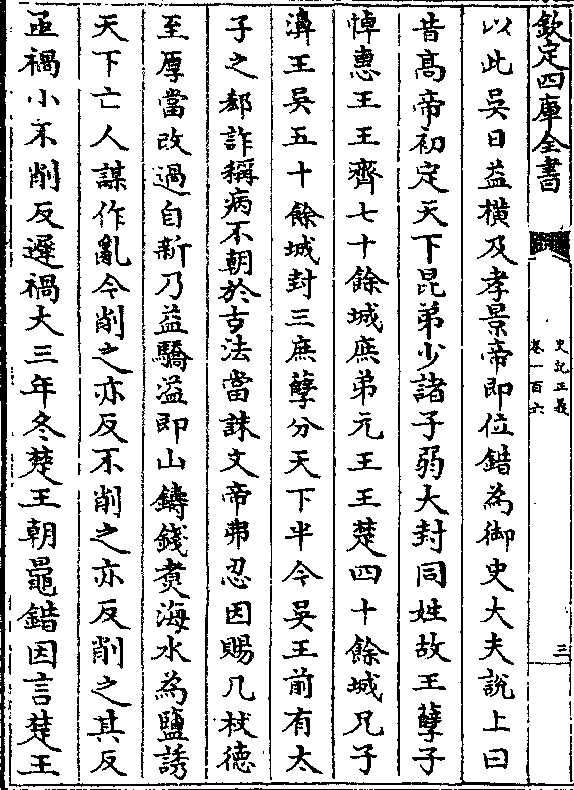 欽定四庫全書
史記正義
卷一百六
三
以此吳日益橫及孝景帝即位錯為御史大夫說上曰
昔髙帝初定天下昆弟少諸子弱大封同姓故王孽子
悼惠王王齊七十餘城庶弟元王王楚四十餘城兄子
濞王吳五十餘城封三庶孽分天下半今吳王前有太
子之郄詐稱病不朝於古法當誅文帝弗忍因賜几杖德
至厚當改過自新乃益驕溢即山鑄錢煑海水為鹽誘
天下亡人謀作亂今削之亦反不削之亦反削之其反
亟禍小不削反遲禍大三年冬楚王朝鼂錯因言楚王